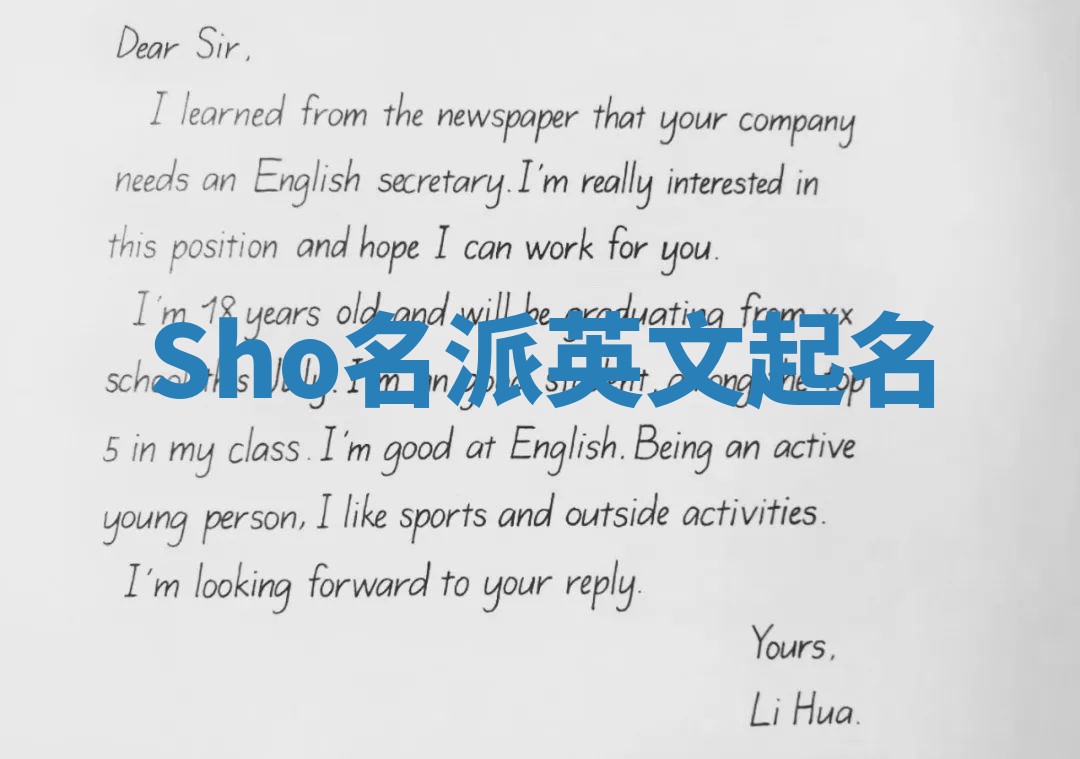 Dear Sir,
I learned from the newspaper that your company
needs an English secretary. I'm really interested in
this position and hope I can work for you.
I'm 18 years old and will be graduating from xx
Sho名派英文起名
school this July. I'm an good student, among the top
5 in my class. I'm good at English. Being an active
young person, I like sports and outside activities.
I'm looking forward to your reply.
Yours,
Li Hua.